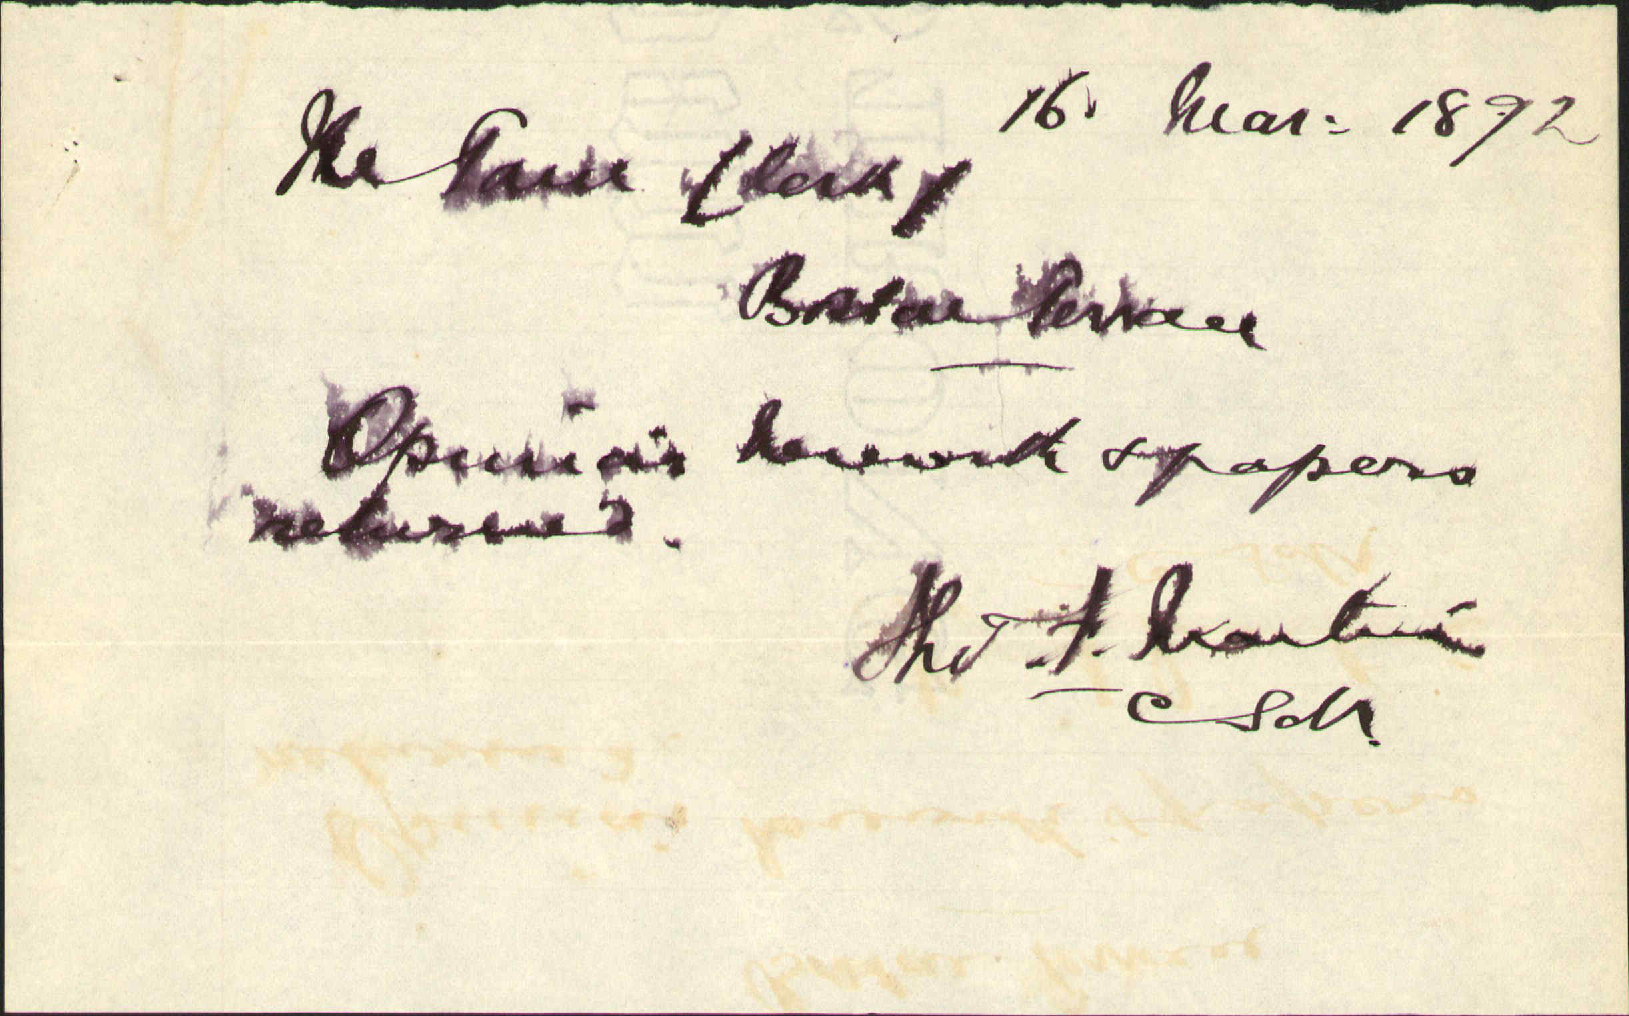 16 Mar: 1892
The Town Clerk /
Boston Terrace
Opinion herewith & papers
returned.
Thos F. Martin
C Solr.